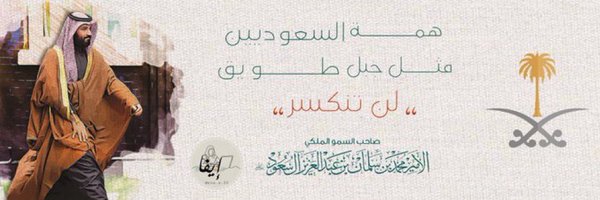 همة السعوديين
مثل جبل طويق
,, لن تنكسر ,,
صاحب السمو الملكي
الأمير محمد بن سلمان بن عبد العزيز آل سعود
إيفا